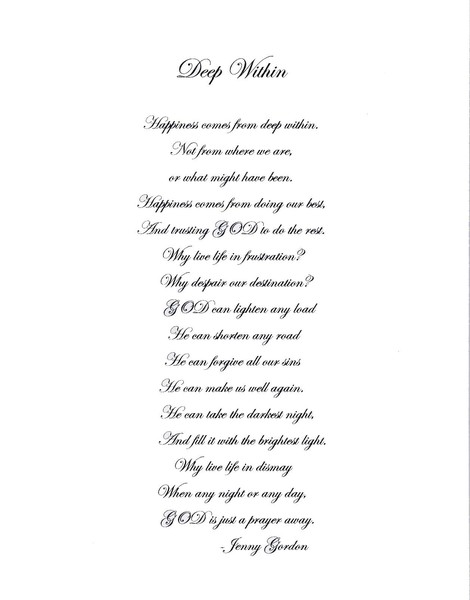 Deep Within
Happiness comes from deep within.
Not from where we are,
or what might have been.
Happiness comes from doing our best,
And trusting GOD to do the rest.
Why live life in frustration?
Why despair our destination?
GOD can lighten any load
He can shorten any road
He can forgive all our sins
He can make us well again.
He can take the darkest night,
And fill it with the brightest light.
Why live life in dismay
When any night or any day,
GOD is just a prayer away.
-Jenny Gordon